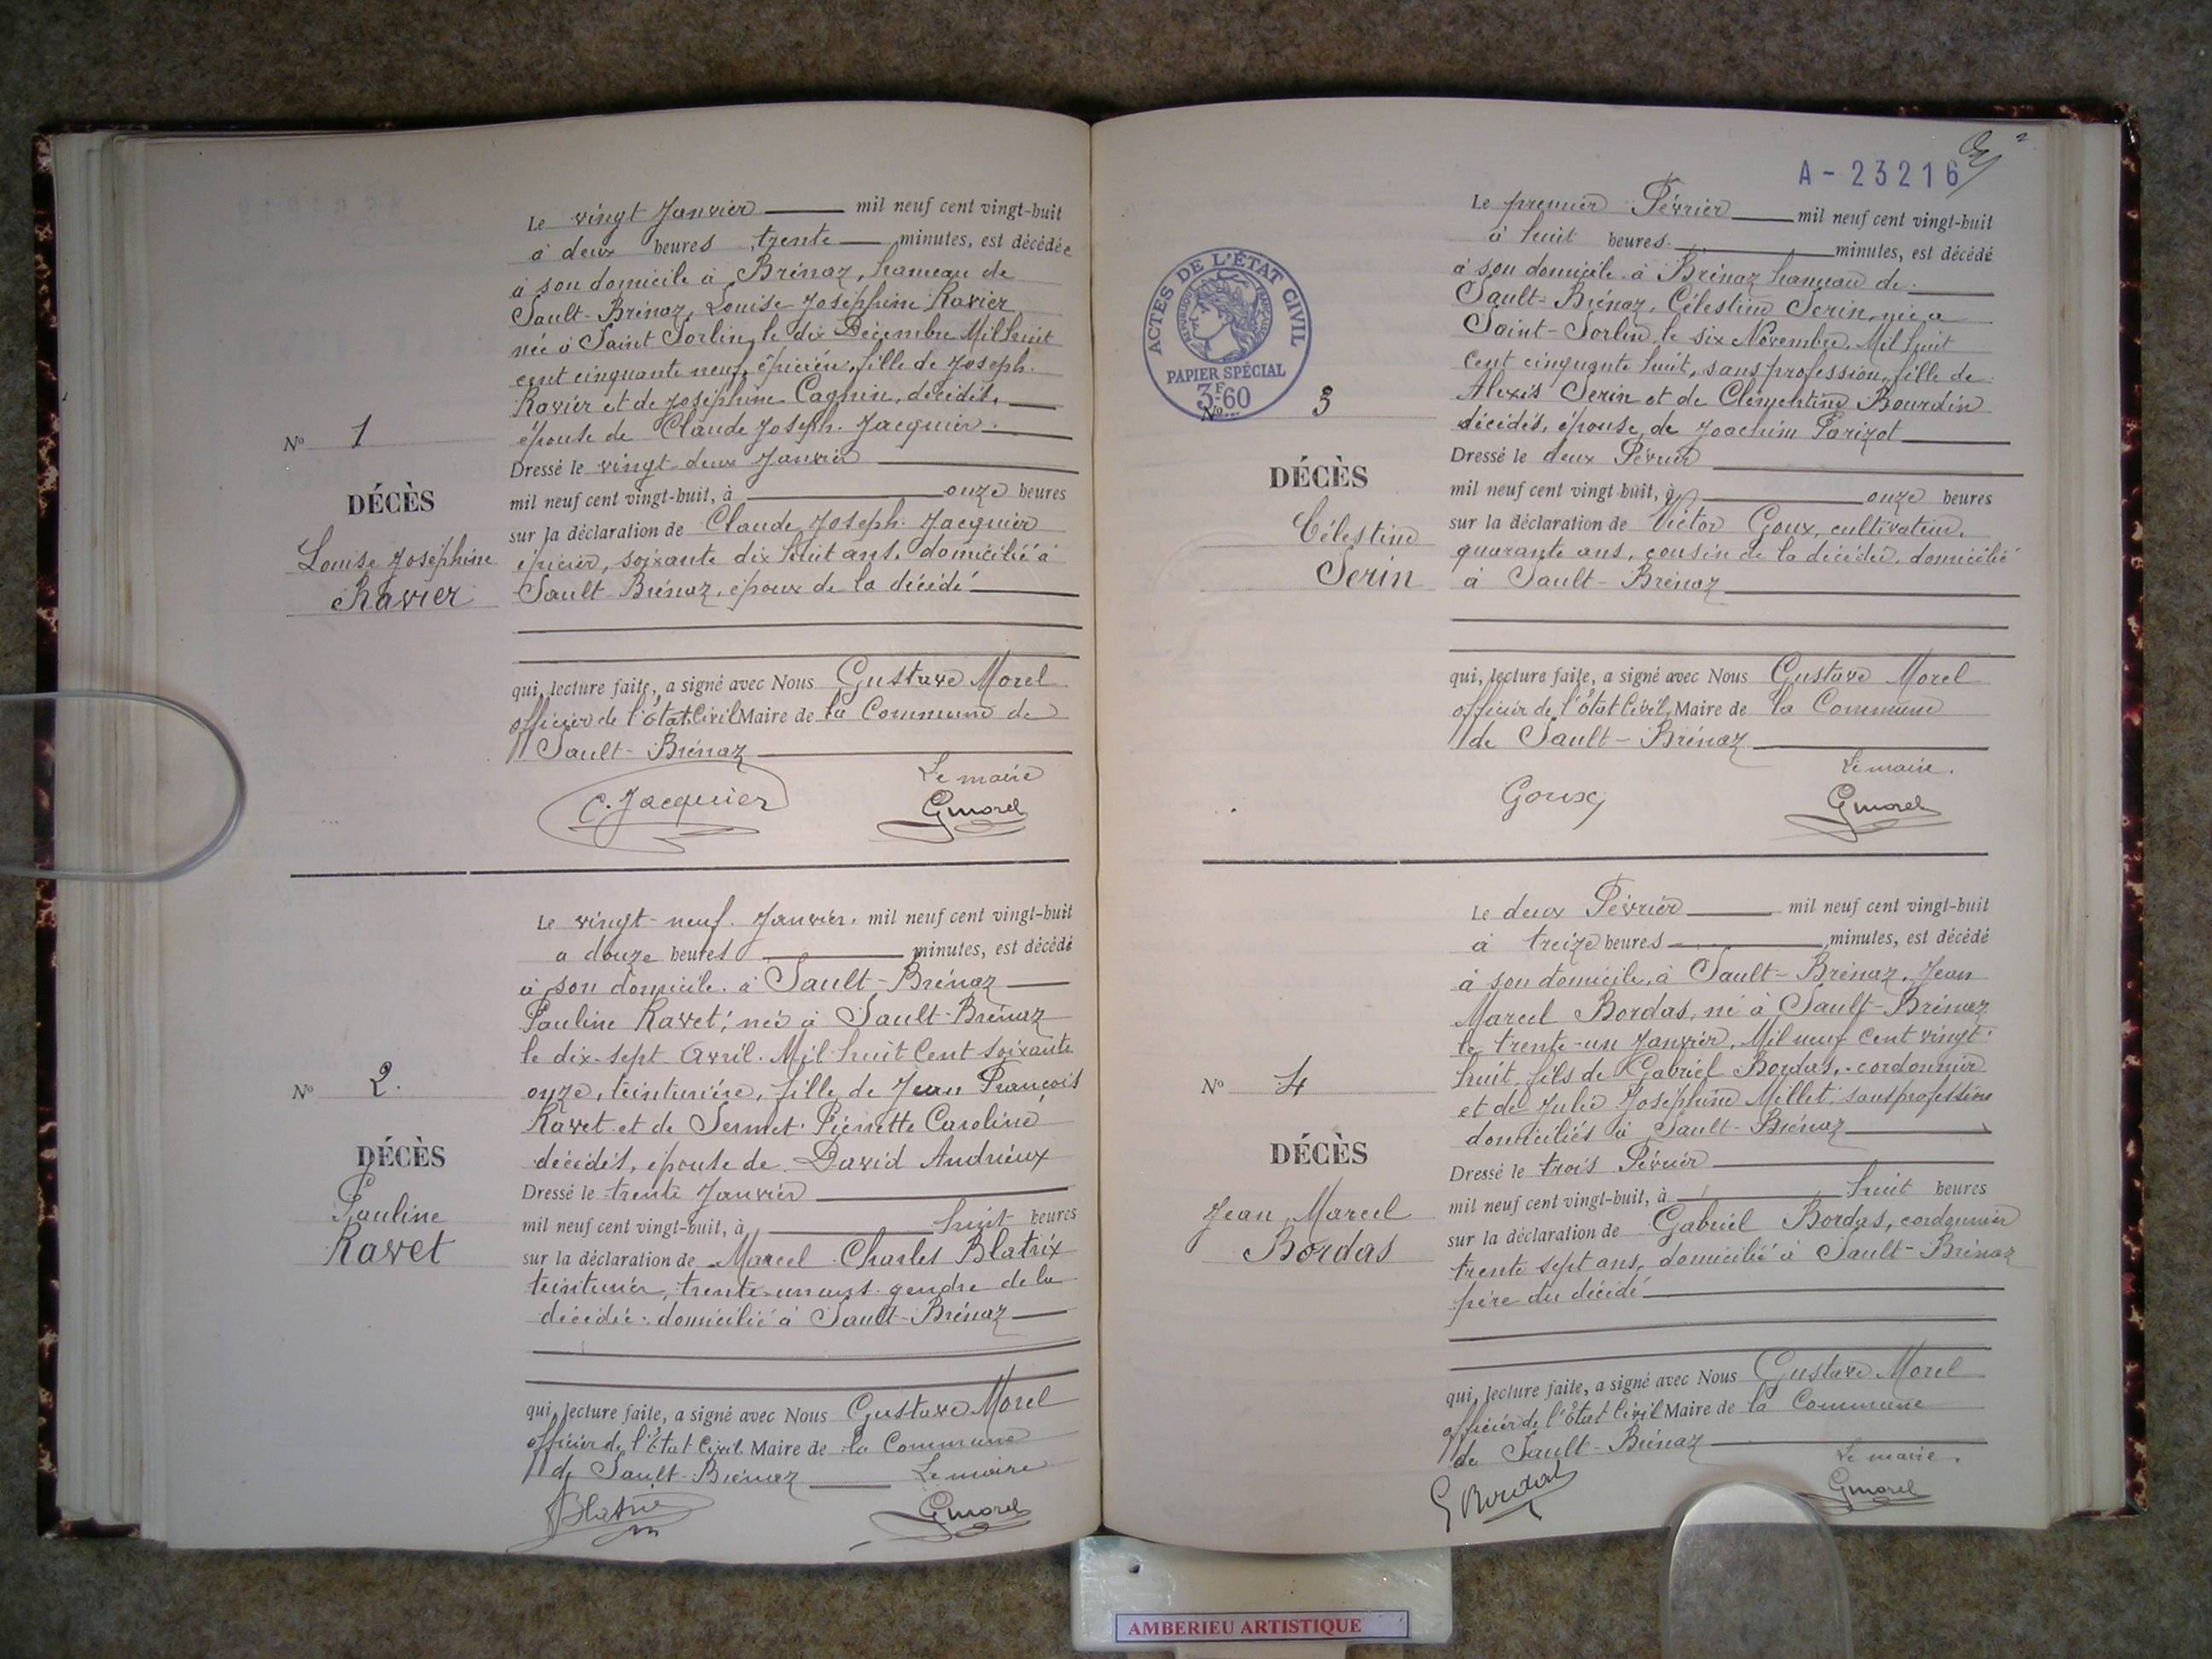 Le vingt Janvier mil neuf cent vingt-huit
à deux heures trente minutes, est décédée
à son domicile à Brénaz, hameau de
Sault-Brénaz, Louise Joséphine Ravier
née à Saint Sorlin, le dix Décembre Mil huit
cent cinquante neuf, épicière, fille de Joseph
Ravier et de Joséphine Cagnin, décédés,
épouse de Claude Joseph Jacquier
Dressé le vingt-deux Janvier
mil neuf cent vingt-huit, à onze heures
sur la déclaration de Claude Joseph Jacquier
épicier, soixante dix huit ans, domicilié à
Sault-Brénaz, époux de la décédé
Nº 1
DÉCÈS
Louise Joséphine
Ravier
qui, lecture faite, a signé avec Nous Gustave Morel
officier de l'État Civil Maire de la Commune de
Sault-Brénaz
Le maire
C. Jacquier
Gmorel
Le vingt-neuf Janvier mil neuf cent vingt-huit
à douze heures minutes, est décédé
à son domicile à Sault-Brénaz
Pauline Ravet, née à Sault-Brénaz
le dix-sept Avril Mil huit Cent soixante
onze, teinturière, fille de Jean François
Ravet et de Sermet Pierrette Caroline
décédés, épouse de David Andrieux
Dressé le trente Janvier
mil neuf cent vingt-huit, à huit heures
sur la déclaration de Marcel Charles Blatrix
teinturier, trente-un ans gendre de la
décédée domicilié à Sault-Brénaz
Nº 2.
DÉCÈS
Pauline
Ravet
qui, lecture faite, a signé avec Nous Gustave Morel
officier de l'État Civil Maire de la Commune
de Sault-Brénaz Le maire
Blatrix
Gmorel
2
A-23216
ACTES DE L'ÉTAT CIVIL
RÉPUBLIQUE FRANÇAISE
PAPIER SPÉCIAL
3F60
Le premier Février mil neuf cent vingt-huit
à huit heures minutes, est décédé
à son domicile à Brénaz hameau de
Sault-Brénaz, Célestine Serin, née à
Saint-Sorlin, le six Novembre, Mil huit
cent cinquante huit, sans profession, fille de
Alexis Serin et de Clementine Bourdin
décédés, épouse de Joachim Parizot
Dressé le deux Février
mil neuf cent vingt-huit, à onze heures
sur la déclaration de Victor Goux, cultivateur,
quarante ans, cousin de la décédée, domicilié
à Sault-Brénaz
Nº 3
DÉCÈS
Célestine
Serin
qui, lecture faite, a signé avec Nous Gustave Morel
officier de l'État Civil, Maire de la Commune
de Sault-Brénaz
Le maire.
Goux
Gmorel
Le deux Février mil neuf cent vingt-huit
à treize heures minutes, est décédé
à son domicile, à Sault-Brénaz, Jean
Marcel Bordas, né à Sault-Brénaz
le trente-un Janvier, Mil neuf Cent vingt
huit, fils de Gabriel Bordas, cordonnier
et de Julie Joséphine Millet, sans profession
domiciliés à Sault-Brénaz
Dressé le trois Février
mil neuf cent vingt-huit, à huit heures
sur la déclaration de Gabriel Bordas, cordonnier
trente sept ans, domicilié à Sault-Brénaz
père du décédé
Nº 4
DÉCÈS
Jean Marcel
Bordas
qui, lecture faite, a signé avec Nous Gustave Morel
officier de l'État Civil Maire de la Commune
de Sault-Brénaz
Le maire.
G Bordas
Gmorel
AMBERIEU ARTISTIQUE